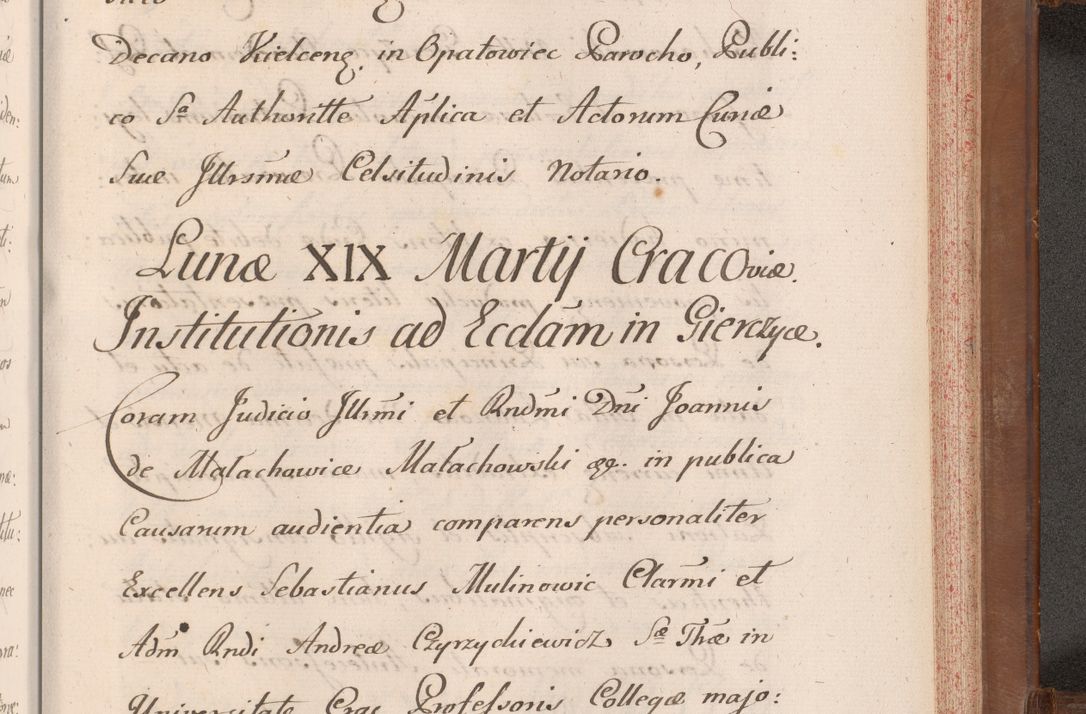 Decano Kielceng. in Opatowiec Parocho, Publi:
co Sa Authoritte Aplica et Actorum Curiæ
Suæ Jllrsmæ Celsitudinis Notario.
Lunæ XIX Martij Cracoviæ.
Institutionis ad Eccläm in Gierczyce.
Coram Judicio Jllrmi et Rndmi Dni Joannis
de Małachowice Małachowski &c. in publica
Causarum audientia comparens personaliter
Excellens Sebastianus Mulinowic Clarmi et
Adm Rndi Andreæ Czyrzyckiewicz Sæ Thæ in
Universitate Crac Professoris Collegæ majo: